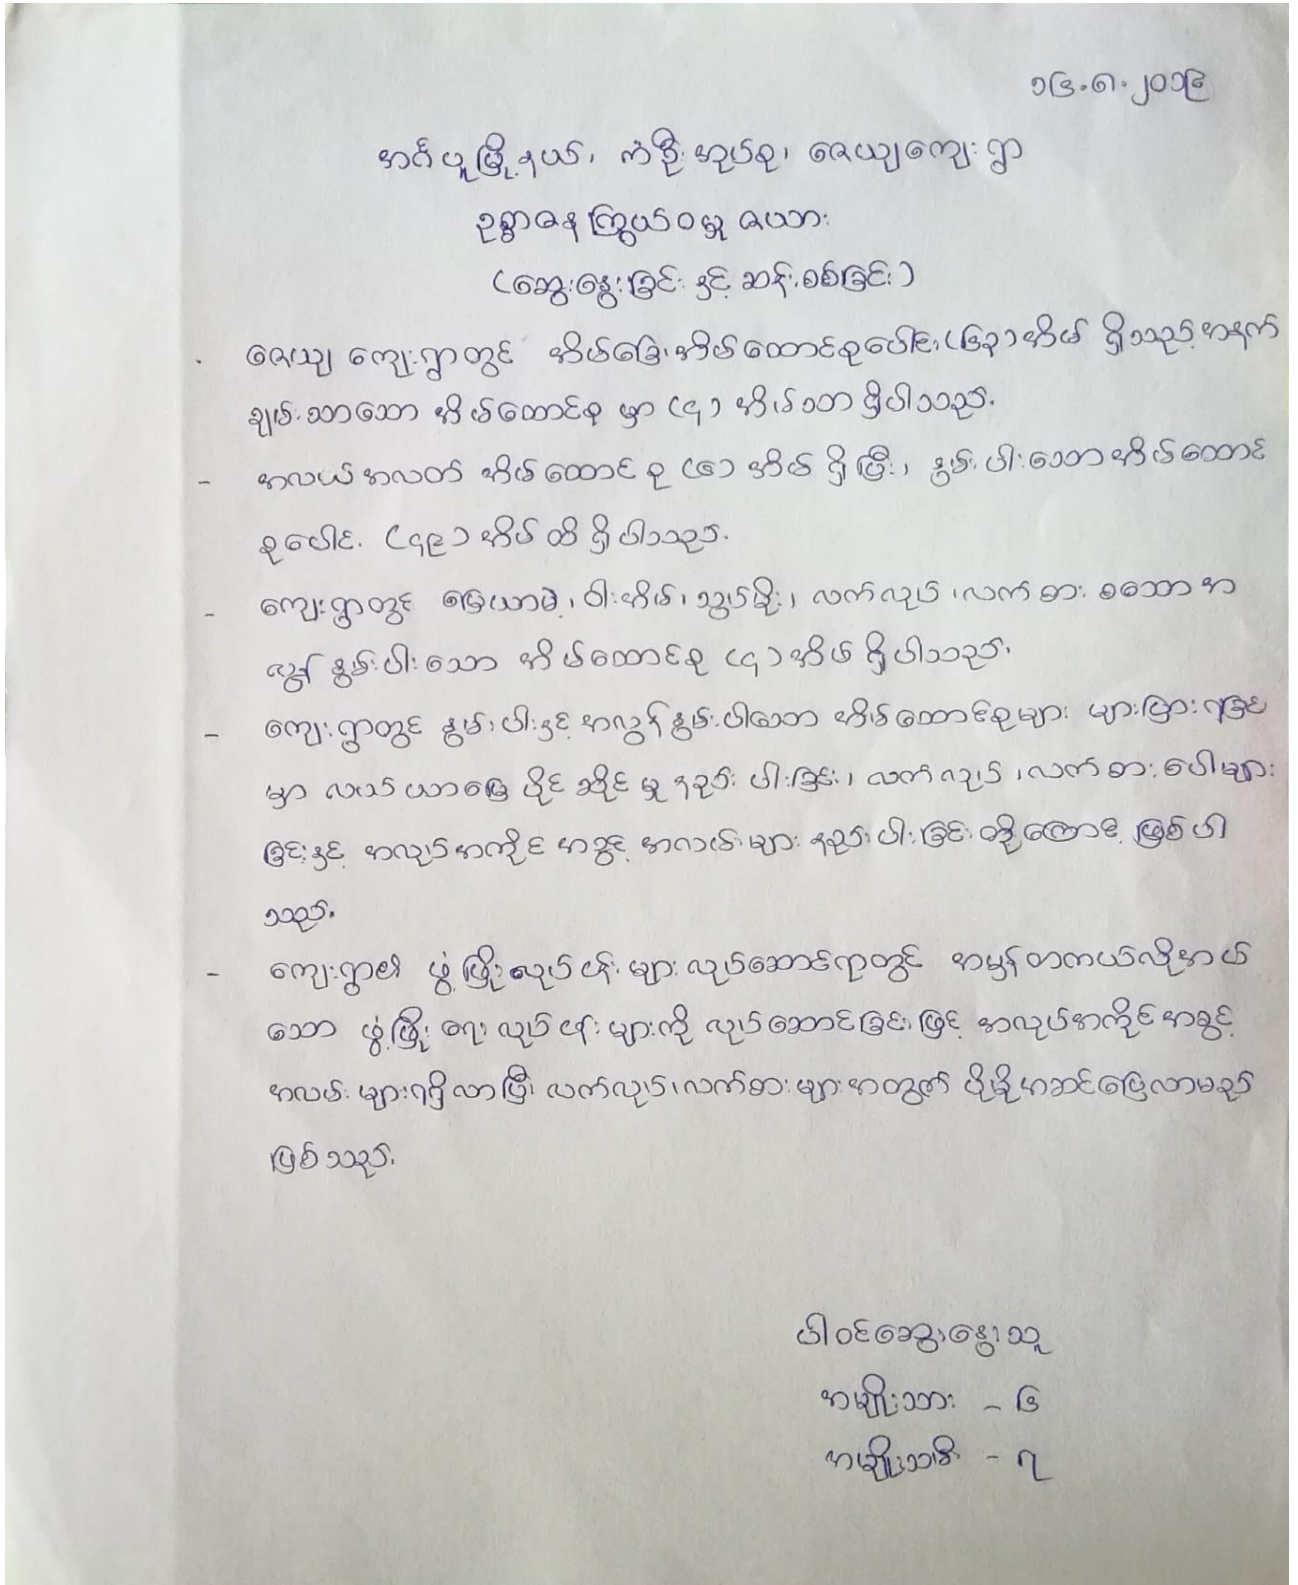 ၁၆.၈.၂၀၁၉
အင်္ဂပူမြို့နယ်၊ ကံဦးအုပ်စု၊ ဇေယျကျေးရွာ
ဥစ္စာဓနကြွယ်ဝမှုဇယား
(ဆွေးနွေးခြင်းနှင့် ဆန်းစစ်ခြင်း)
. ဇေယျ ကျေးရွာတွင် အိမ်ခြေ၊ အိမ်ထောင်စုပေါင်း (၆၃) အိမ် ရှိသည့်အနက်
ချမ်းသာသော အိမ်ထောင်စု မှာ (၄) အိမ်သာ ရှိပါသည်။
- အလယ်အလတ် အိမ်ထောင်စု (၆) အိမ် ရှိပြီး၊ နွမ်းပါးသောအိမ်ထောင်
စုပေါင်း (၄၉) အိမ်ထိ ရှိပါသည်။
- ကျေးရွာတွင် မြေယာမဲ့၊ ဝါးအိမ်၊ သွပ်မိုး၊ လက်လုပ်၊ လက်စား စသော အ
လွန် နွမ်းပါးသော အိမ်ထောင်စု (၄) အိမ် ရှိပါသည်။
- ကျေးရွာတွင် နွမ်းပါးနှင့် အလွန်နွမ်းပါးသော အိမ်ထောင်စုများ များပြားရခြင်း
မှာ လယ်ယာမြေ ပိုင်ဆိုင်မှု နည်းပါးခြင်း၊ လက်လုပ်၊ လက်စား ပေါများ
ခြင်းနှင့် အလုပ်အကိုင် အခွင့်အလမ်းများ နည်းပါးခြင်းတို့ကြောင့် ဖြစ်ပါ
သည်။
- ကျေးရွာ၏ ဖွံ့ဖြိုးလုပ်ငန်းများ လုပ်ဆောင်ရာတွင် အမှန်တကယ်လိုအပ်
သော ဖွံ့ဖြိုးရေးလုပ်ငန်းများကို လုပ်ဆောင်ခြင်းဖြင့် အလုပ်အကိုင်အခွင့်
အလမ်းများရရှိလာပြီး လက်လုပ်၊ လက်စားများအတွက် ပိုမိုအဆင်ပြေလာမည်
ဖြစ်သည်။
ပါဝင်ဆွေးနွေးသူ
အမျိုးသား - ၆
အမျိုးသမီး - ၇